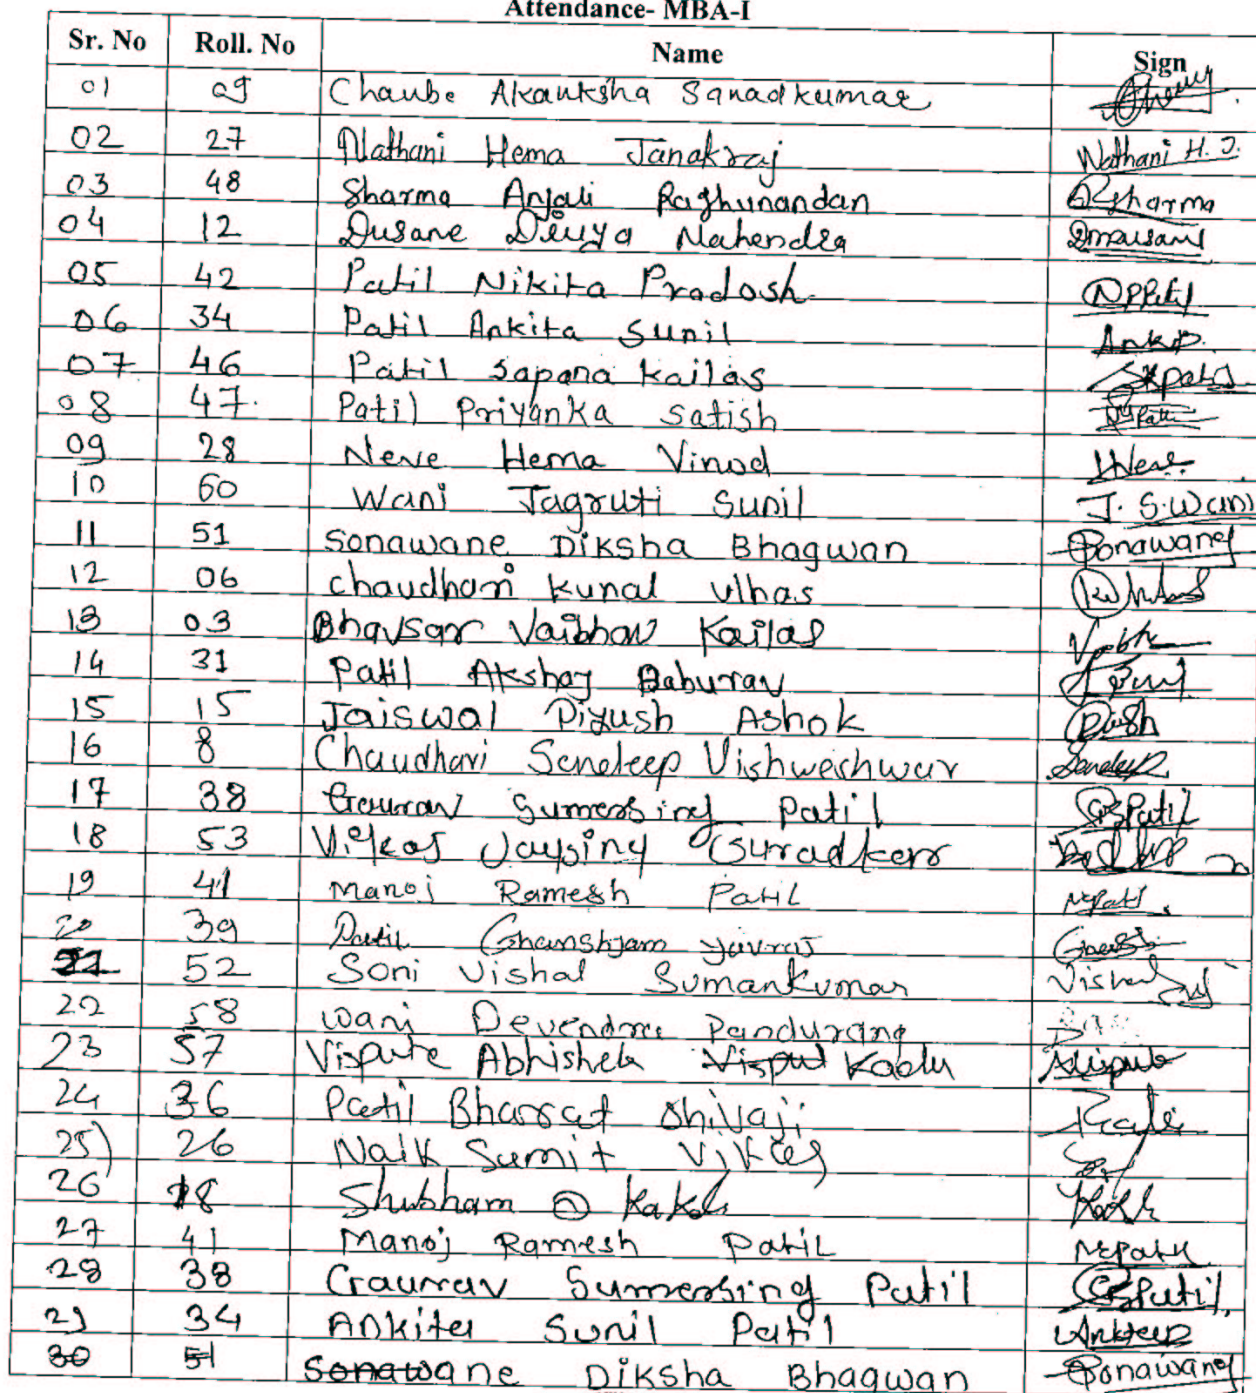 Attendance- MBA-I
Sr. No Roll. No Name Sign
01 09 Chaube Akanksha Sanadkumar
02 27 Nathani Hema Janakraj Nathani H. J.
03 48 Sharma Anjali Raghunandan Sharma
04 12 Dusane Divya Mahendra
05 42 Patil Nikita Pradosh NPPatil
06 34 Patil Ankita Sunil
07 46 Patil Sapana Kailas SKPatil
08 47. Patil Priyanka Satish
09 28 Neve Hema Vinod HNeve
10 60 Wani Jagruti Sunil J. S. Wani
11 51 Sonawane Diksha Bhagwan Sonawane
12 06 Chaudhari Kunal Ulhas
13 03 Bhavsar Vaibhav Kailas
14 31 Patil Akshay Baburav
15 15 Jaiswal Piyush Ashok Piush
16 8 Chaudhari Sandeep Vishweshwar Sandeep
17 38 Gaurav Sumersing Patil GSPatil
18 53 Vikas Jaysing Suradkar
19 41 Manoj Ramesh Patil MRPatil
20 39 Patil Ghanshyam Yuvraj
21 52 Soni Vishal Sumankumar Vishal
22 58 Wani Devendra Pandurang
23 57 Vispute Abhishek Visput Kadu AVispute
24 36 Patil Bharat Shivaji
25) 26 Naik Sumit Vikas
26 18 Shubham Kakde
27 41 Manoj Ramesh Patil MRPatil
28 38 Gaurav Sumersing Patil GSPatil
29 34 Ankita Sunil Patil
30 51 Sonawane Diksha Bhagwan Sonawane